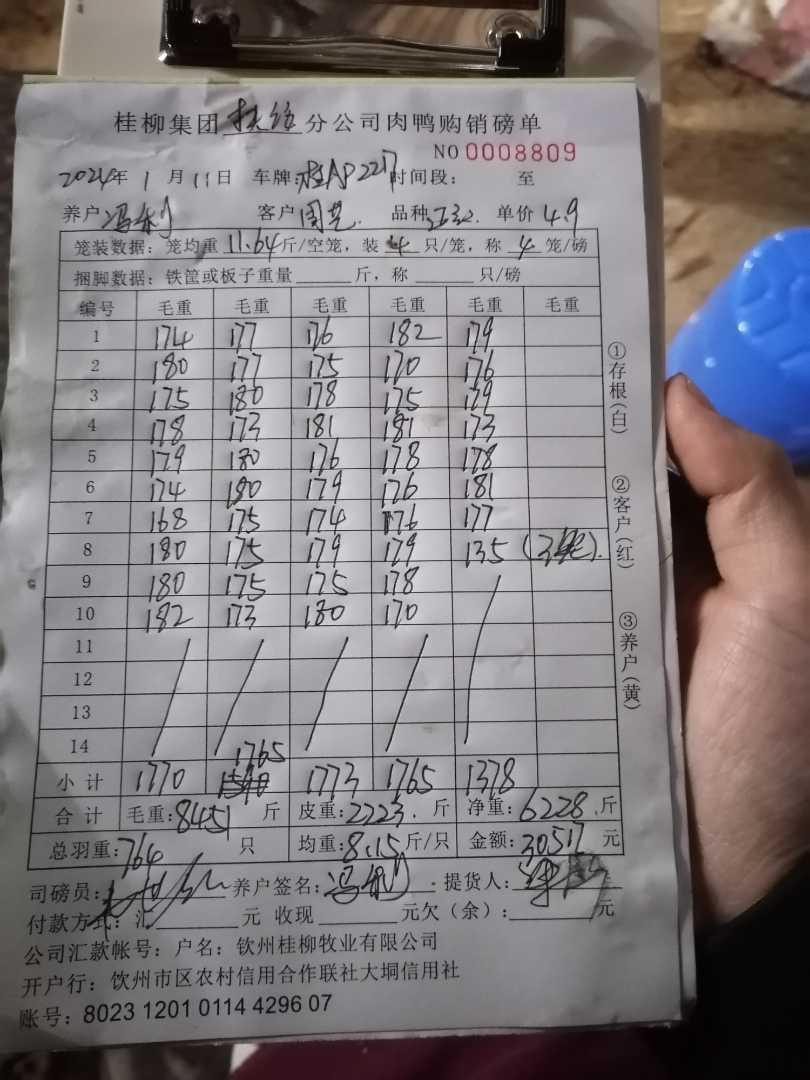 桂柳集团 扶绥 分公司肉鸭购销磅单
NO 0008809
2024年 1 月 11日 车牌:桂AP2217 时间段: 至
养户 冯利 客户 周艺. 品种 江红. 单价 4.9
笼装数据:笼均重 11.64 斤/空笼,装 4 只/笼,称 4 笼/磅
捆脚数据:铁筐或板子重量 斤,称 只/磅
编号 毛重 毛重 毛重 毛重 毛重 毛重
1 174 177 176 182 179
2 180 177 175 170 176
3 175 180 178 175 179
4 178 173 181 181 173
5 179 180 176 178 178
6 174 180 179 176 181
7 168 175 174 176 177
8 180 175 179 179 135 (3笼).
9 180 175 175 178
10 182 173 180 170
11
12
13
14
小计 1770 1765 1773 1765 1378
合计 毛重:8451 斤 皮重:2223. 斤 净重:6228.斤
总羽重:764 只 均重:8.15斤/只 金额:30517 元
司磅员: 养户签名:冯利 提货人:
付款方式:汇 元 收现 元欠(余): 元
公司汇款帐号:户名:钦州桂柳牧业有限公司
开户行:饮州市区农村信用合作联社大垌信用社
账号:8023 1201 0114 4296 07
①存根(白)
②客户(红)
③养户(黄)